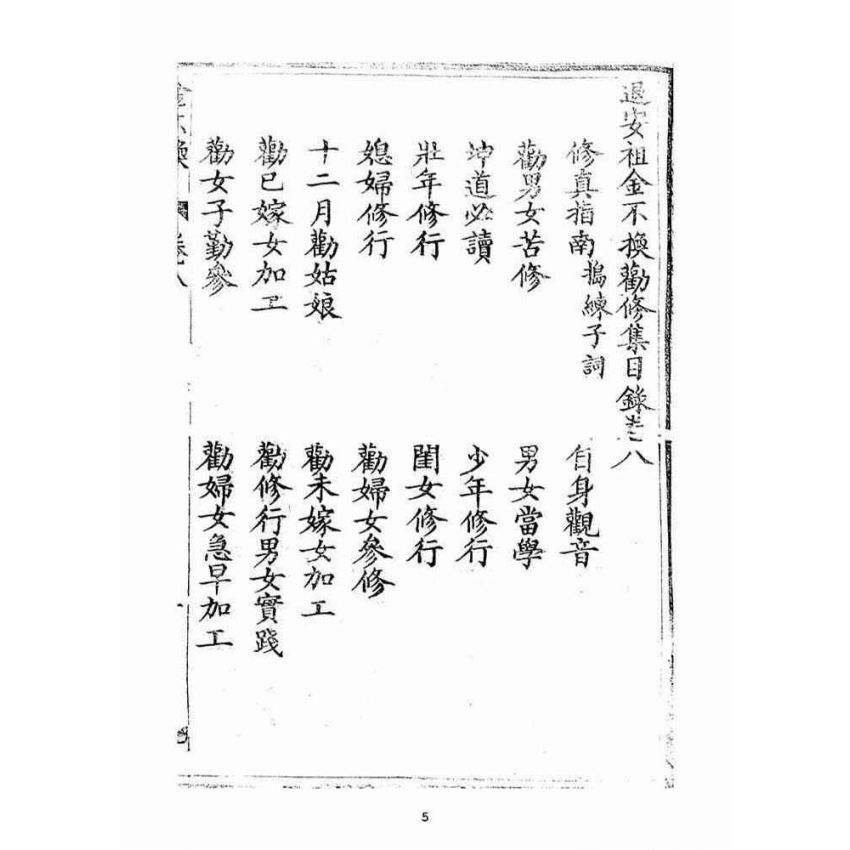 退安祖金不換勸修集目錄卷八
修真指南 搗練子詞 自身觀音
勸男女苦修 男女當學
坤道必讀 少年修行
壯年修行 閨女修行
媳婦修行 勸婦女參修
十二月勸姑娘 勸未嫁女加工
勸已嫁女加工 勸修行男女實踐
勸女子勤參 勸婦女急早加工
金不換 卷八 一
5